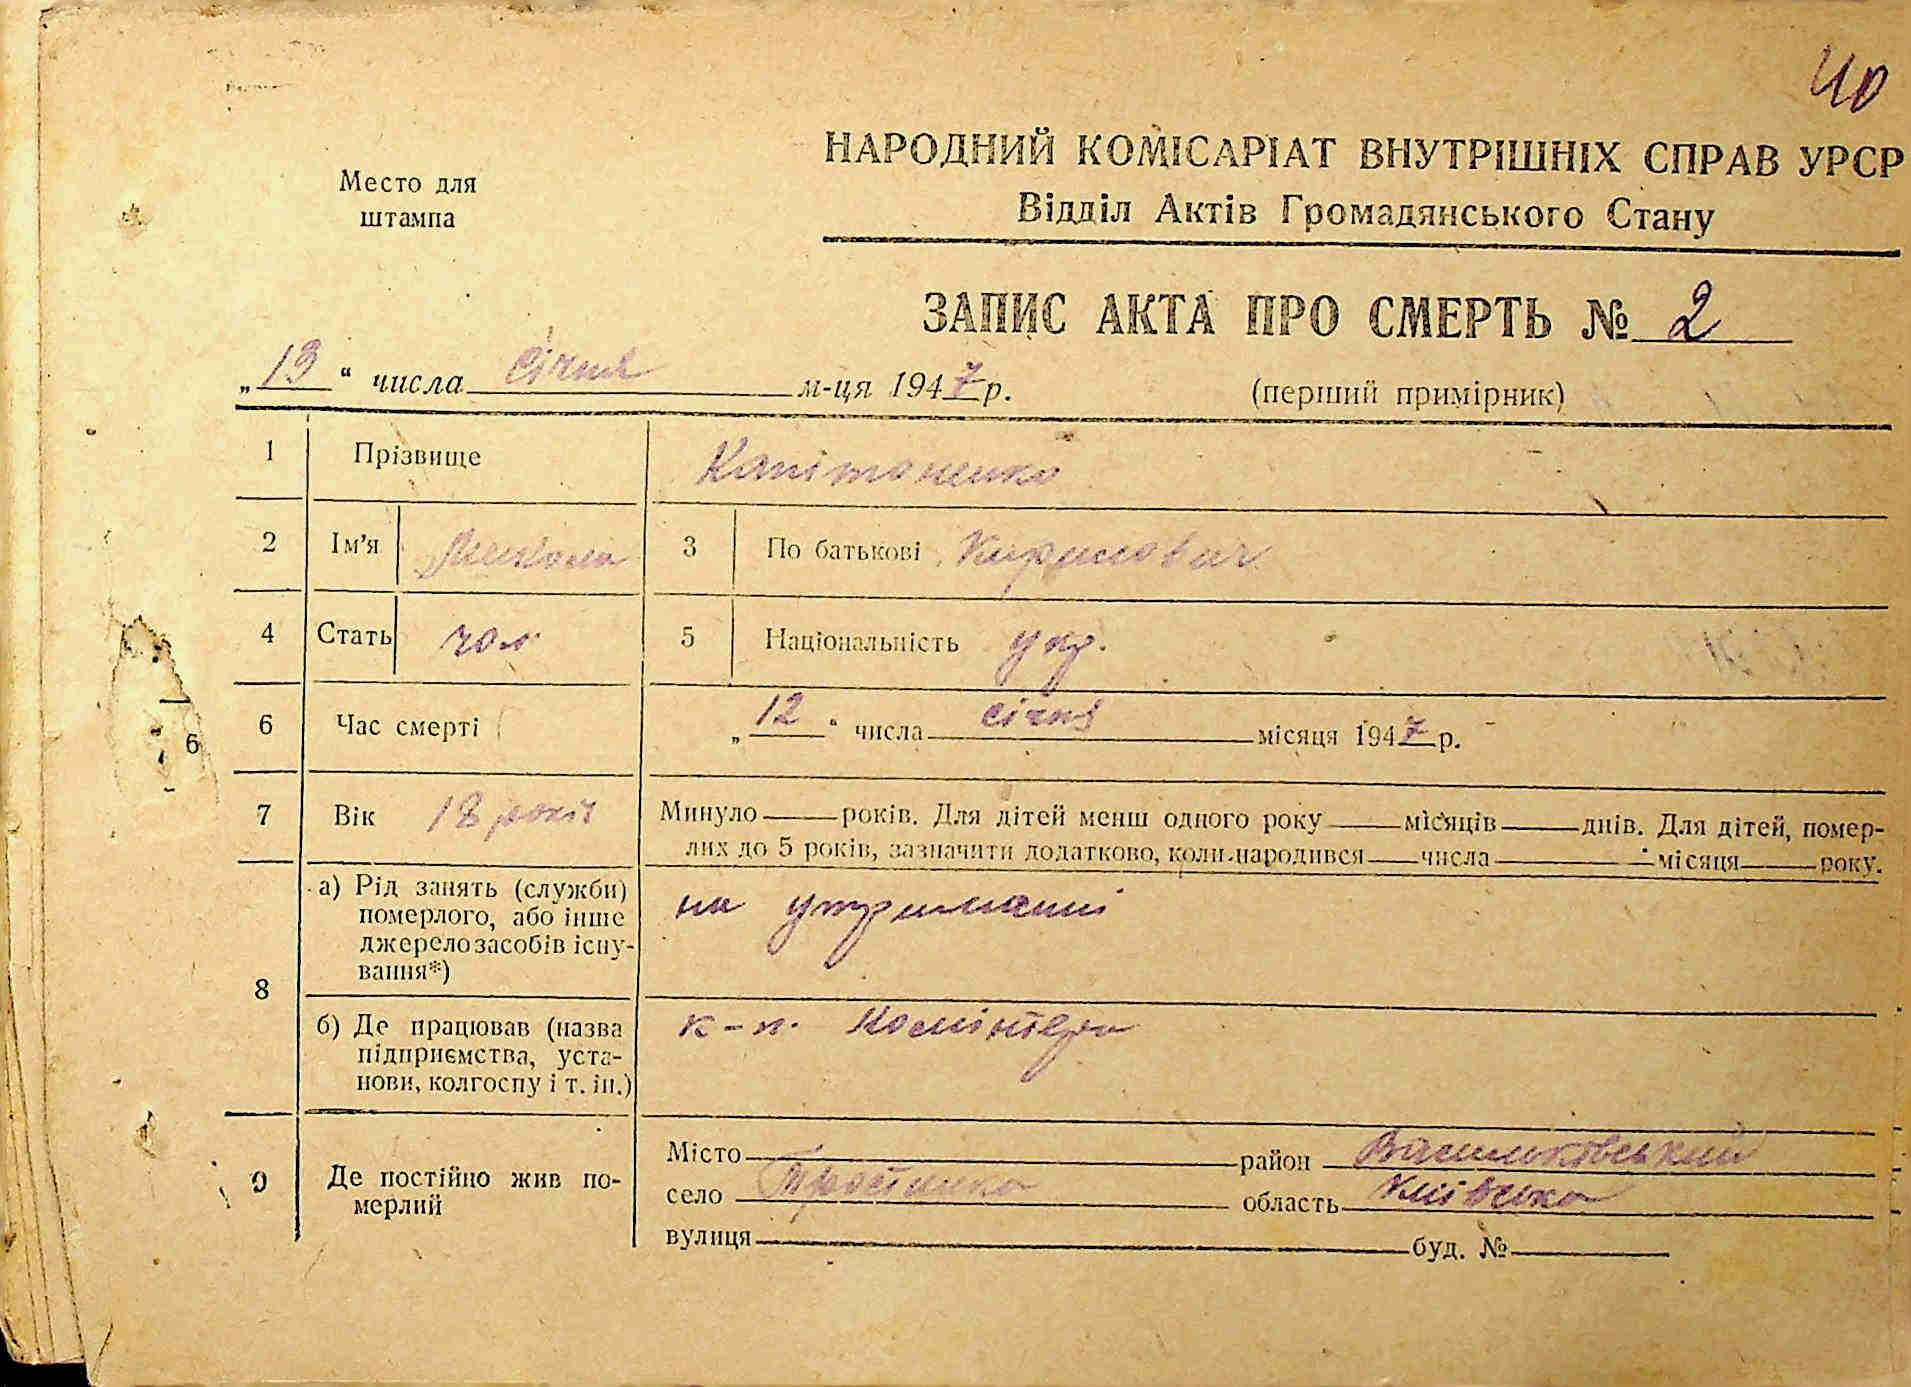 40
НАРОДНИЙ КОМІСАРІАТ ВНУТРІШНІХ СПРАВ УРСР
Відділ Актів Громадянського Стану
Место для
штампа
ЗАПИС АКТА ПРО СМЕРТЬ № 2
„13“ числа січня м-ця 1947 р.
(перший примірник)
1 Прізвище Капітоненко
2 Ім'я Микола 3 По батькові Кирилович
4 Стать чол. 5 Національність укр.
6 Час смерті „12“ числа січня місяця 1947 р.
6
7 Вік 18 років Минуло років. Для дітей менш одного року місяців днів. Для дітей, помер-
лих до 5 років, зазначити додатково, коли народився числа місяця року.
8
а) Рід занять (служби)
померлого, або інше
джерело засобів існу-
вання*)
на утриманні
б) Де працював (назва
підприємства, уста-
нови, колгоспу і т. ін.)
к-п. Комінтерн
9 Де постійно жив по-
мерлий
Місто район Васильківський
село Тростинка область Київська
вулиця буд. №